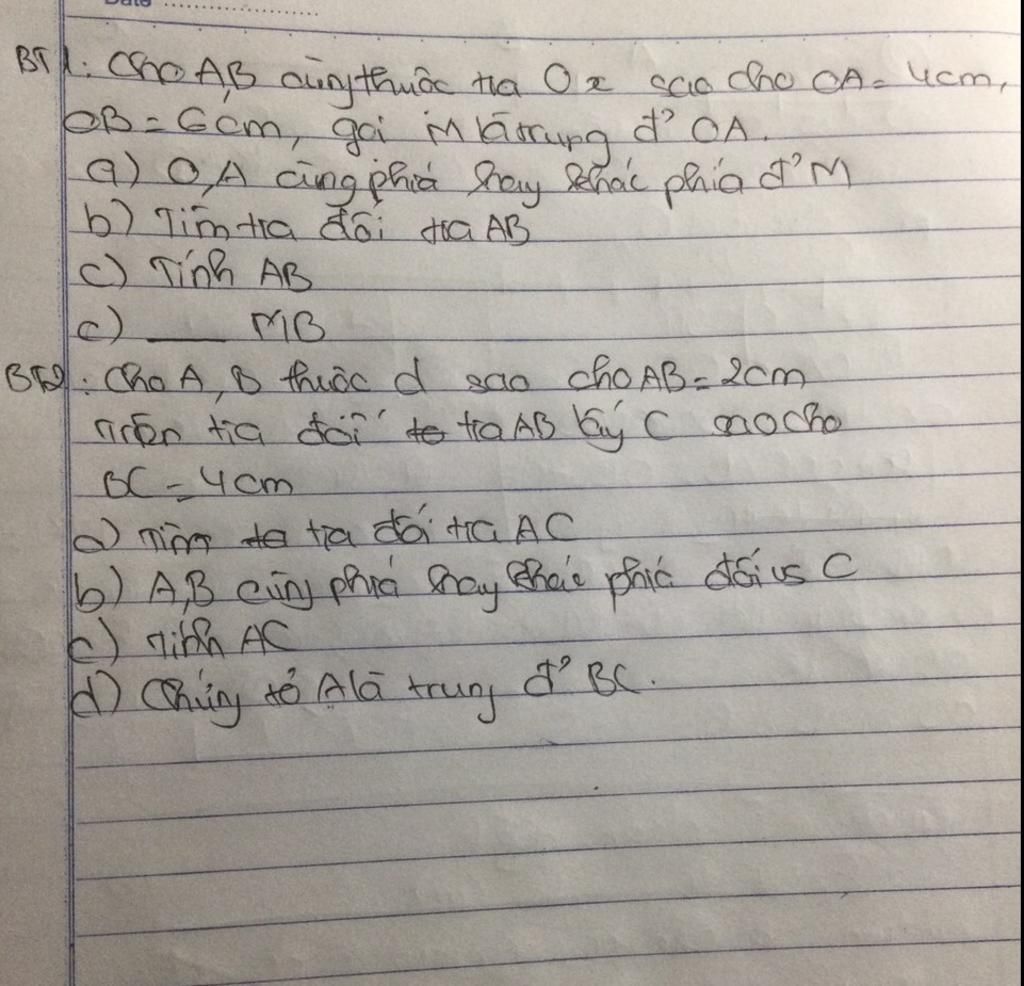 Date ....................
BT1: Cho A,B cùng thuộc tia Ox sao cho OA = 4cm,
OB = 6cm, gọi M là trung đ' OA.
a) O,A cùng phía hay khác phía đ' M
b) Tìm tia đối tia AB
c) Tính AB
c) ___ MB
BT2: Cho A, B thuộc d sao cho AB = 2cm
Trên tia đối tia AB lấy C sao cho
BC = 4cm
a) Tìm tia đối tia AC
b) A,B cùng phía hay khác phía đối vs C
c) Tính AC
d) Chứng tỏ A là trung đ' BC.